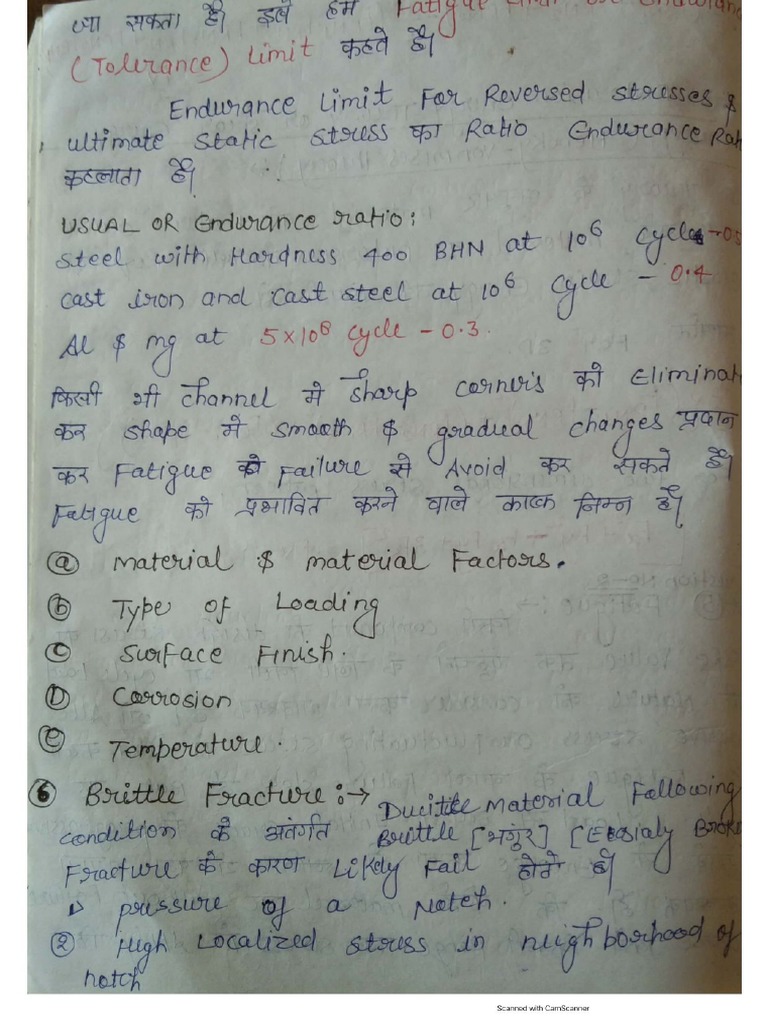 जा सकता है। इसे हम Fatigue Limit or Endurance
(Tolerance) Limit कहते है।
Endurance Limit For Reversed stresses &
ultimate static stress का Ratio Endurance
कहलाता है।
USUAL OR Endurance ratio:
steel with Hardness 400 BHN at 10⁶ cycle
cast iron and cast steel at 10⁶ cycle - 0.4
Al & mg at 5×10⁸ cycle - 0.3.
किसी भी channel मे sharp corner's को Eliminat
कर shape मे smooth & gradual changes प्रदान
कर Fatigue Failure से Avoid कर सकते है।
Fatigue को प्रभावित करने वाले कारक निम्न है।
(a) Material & material Factors.
(b) Type of Loading
(c) Surface Finish.
(D) Corrosion
(e) Temperature.
(6) Brittle Fracture:→ Material Following
condition के अंतर्गत Brittle [भंगुर]
Fracture के कारण Likely Fail होते है।
pressure of a Notch.
(2) High Localized stress in neighborhood of
notch
Scanned with CamScanner